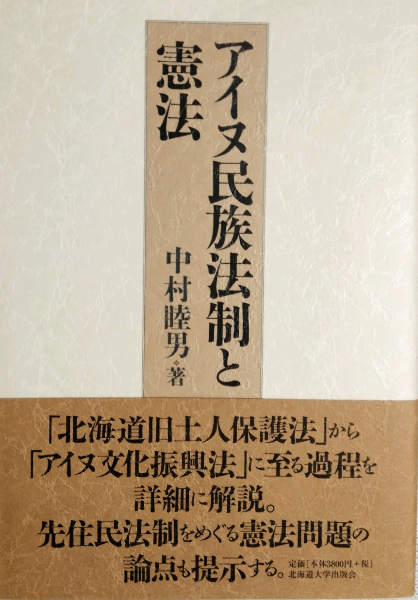 アイヌ民族法制と
憲法
中村睦男・著
「北海道旧土人保護法」から
「アイヌ文化振興法」に至る過程を
詳細に解説。
先住民法制をめぐる憲法問題の
論点も提示する。
定価[本体3800円+税]
北海道大学出版会